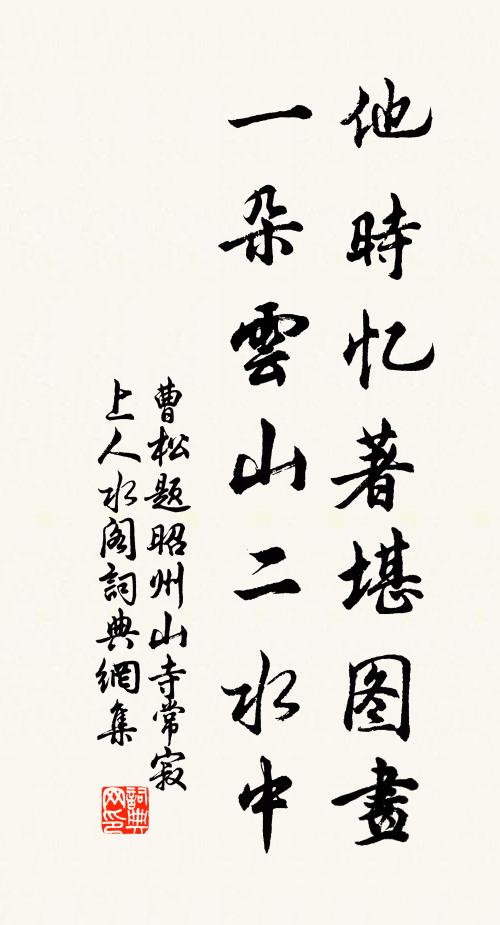 他時忆著堪图畫
一朵雲山二水中
曹松题昭州山寺常寂
上人水阁詞典網集
詞典网印